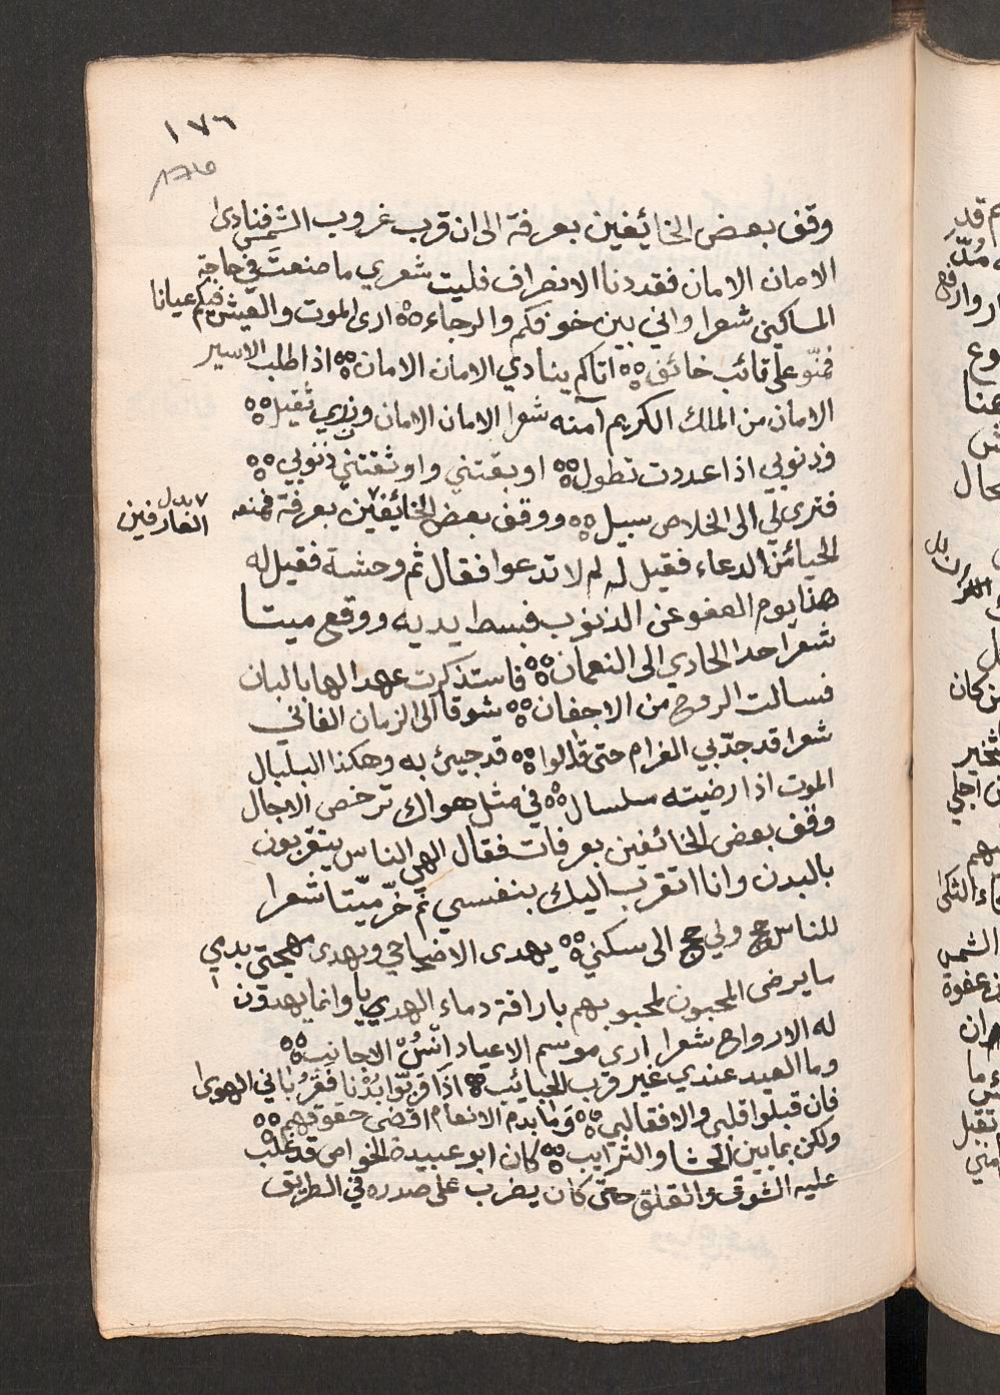 ١٧٦
وقف بعض الخائفين بعرفة الى ان قرب غروب الشمس فنادى
الامان الامان فقد دنا الانصراف فليت شعري ما صنعت في حاجة
المساكين شعرا واني بين خوفكم والرجاء ارى الموت والعيش فيكم عيانا
فمنّو على تائب خائف اتاكم ينادي الامان الامان اذا طلب الاسير
الامان من الملك الكريم آمنه شعرا الامان الامان وزري ثقيل
وذنوبي اذا عددت تطول اوبقتني واوثقتني ذنوبي
فترى لي الى الخلاص سبيل ووقف بعض الخائفين بعرفة فمنعه
٧ بدل
العارفين
الحيا من الدعاء فقيل له لم لا تدعوا فقال ثم وحشة فقيل له
هذا يوم العفو عن الذنوب فبسط يديه ووقع ميتا
شعرا حدا الحادي الى النعمان فاستذكرت عهدا لها بالبان
فسالت الروح من الاجفان شوقا الى الزمان الفاني
شعرا قد جدّ بي الغرام حتى قالوا قد جيئ به وهكذا البلبال
الموت اذا رضيته سلسال في مثل هواك ترخص الاجال
وقف بعض الخائفين بعرفات فقال الهي الناس يتقربون
بالبدن وانا اتقرب اليك بنفسي ثم خرّ ميّتا شعرا
للناس حج ولي حج الى سكني يهدى الاضاحي ويهدى مهجتي بدمي
ما يرضى المحبون لمحبوبهم باراقة دماء الهدايا وانما يهدون
له الارواح شعرا ارى موسم الاعياد انسُ الاجانب
وما العيد عندي غير قرب الحبائب اذا قربّوا بُدْنا فقُرْباني الهوى
فان قبلوا قلبي والا فقالبي وما بدم الانعام اقضي حقوقهم
ولكن بما بين الحشا والترايب كان ابو عبيدة الخواص قد غلب
عليه الشوق والقلق حتى كان يضرب على صدره في الطريق